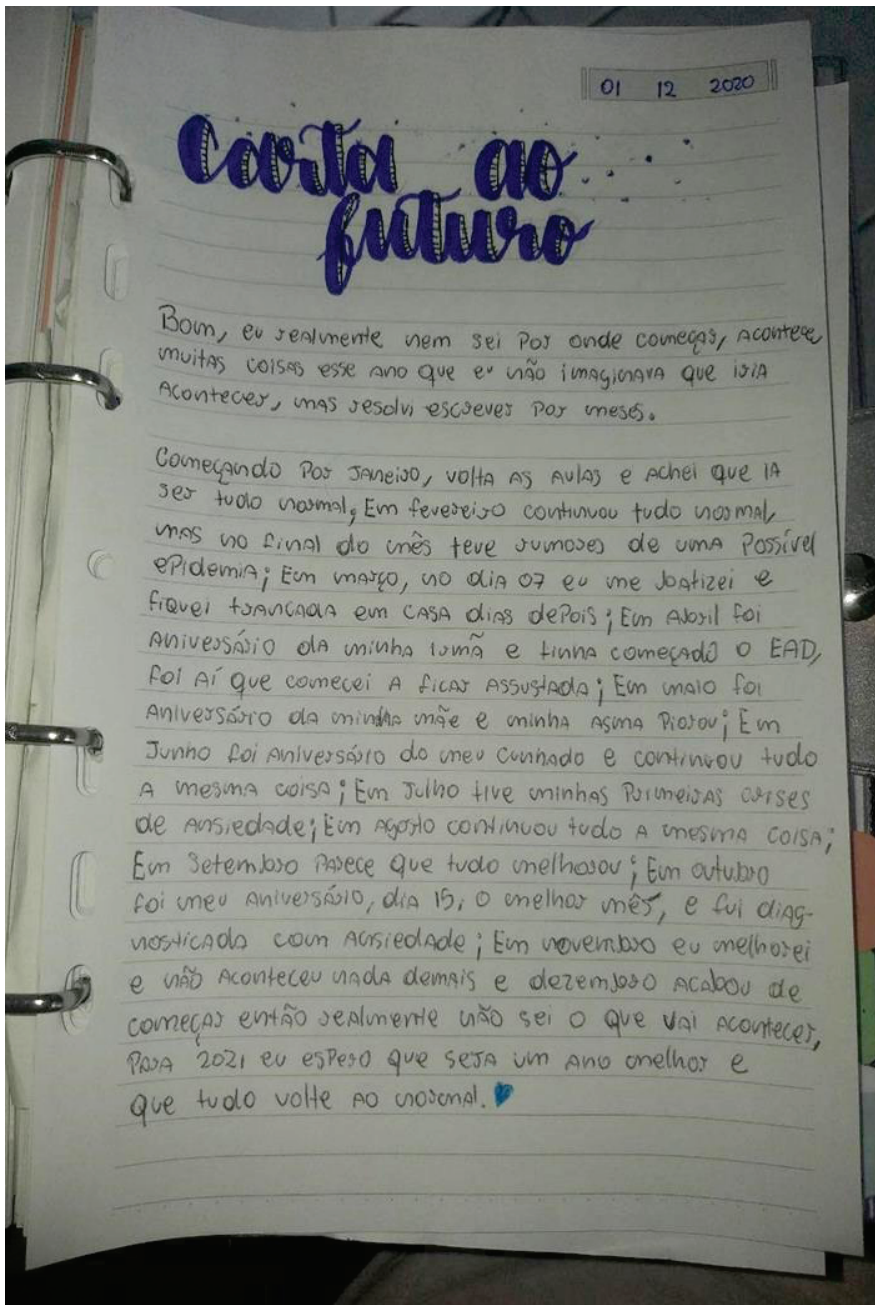 01 12 2020
Carta ao
futuro
Bom, eu realmente nem sei por onde começar, acontece
muitas coisas esse ano que eu não imaginava que iria
acontecer, mas resolvi escrever por meses.
Começando por janeiro, volta as aulas e achei que ia
ser tudo normal; Em fevereiro continuou tudo normal,
mas no final do mês teve rumores de uma possível
epidemia; Em março, no dia 07 eu me batizei e
fiquei trancada em casa dias depois; Em Abril foi
aniversário da minha irmã e tinha começado o EAD,
foi aí que comecei a ficar assustada; Em maio foi
aniversário da minha mãe e minha asma piorou; Em
Junho foi aniversário do meu cunhado e continuou tudo
a mesma coisa; Em Julho tive minhas primeiras crises
de ansiedade; Em Agosto continuou tudo a mesma coisa;
Em Setembro parece que tudo melhorou; Em outubro
foi meu aniversário, dia 15, o melhor mês, e fui diag-
nosticada com ansiedade; Em novembro eu melhorei
e não aconteceu nada demais e dezembro acabou de
começar então realmente não sei o que vai acontecer,
para 2021 eu espero que seja um ano melhor e
que tudo volte ao normal.